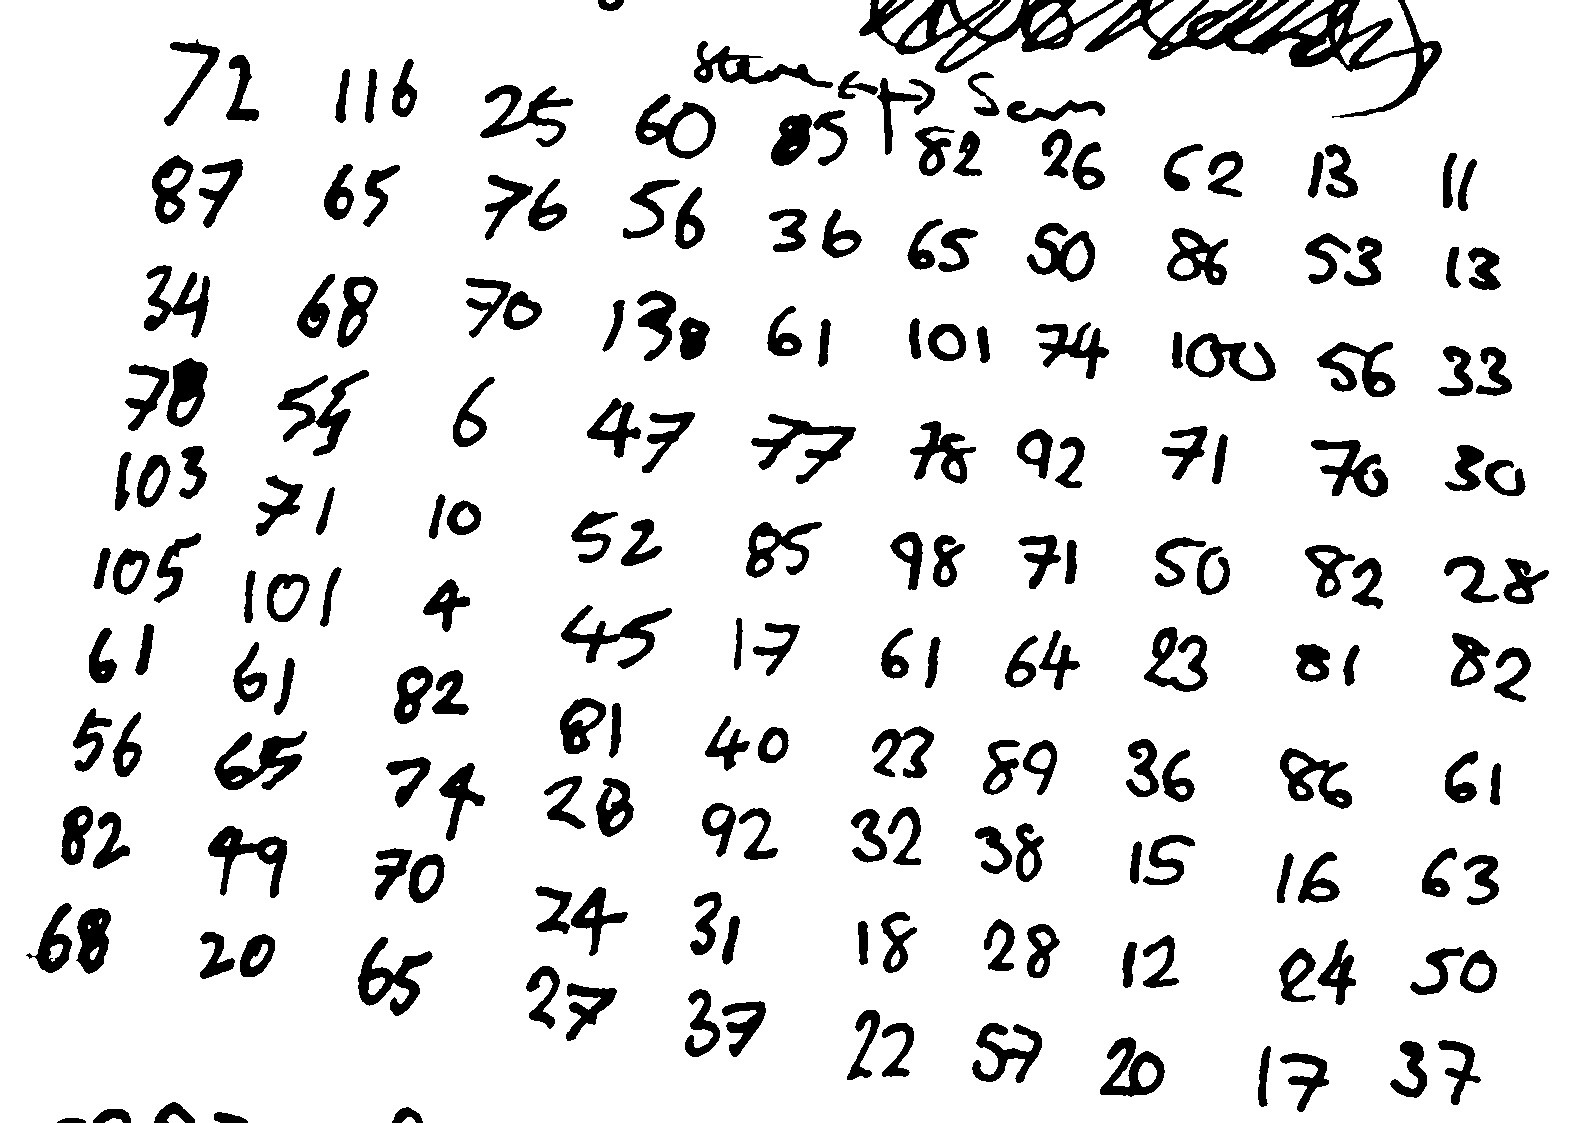 Steve ←|→ Sean
72 116 25 60 85 82 26 62 13 11
87 65 76 56 36 65 50 86 53 13
34 68 70 138 61 101 74 100 56 33
78 6 47 77 78 92 71 70 30
103 71 10 52 85 98 71 50 82 28
105 101 4 45 17 61 64 23 81 82
61 61 82 81 40 23 89 36 86 61
56 65 74 28 92 32 38 15 16 63
82 49 70 24 31 18 28 12 24 50
68 20 65 27 37 22 57 20 17 37